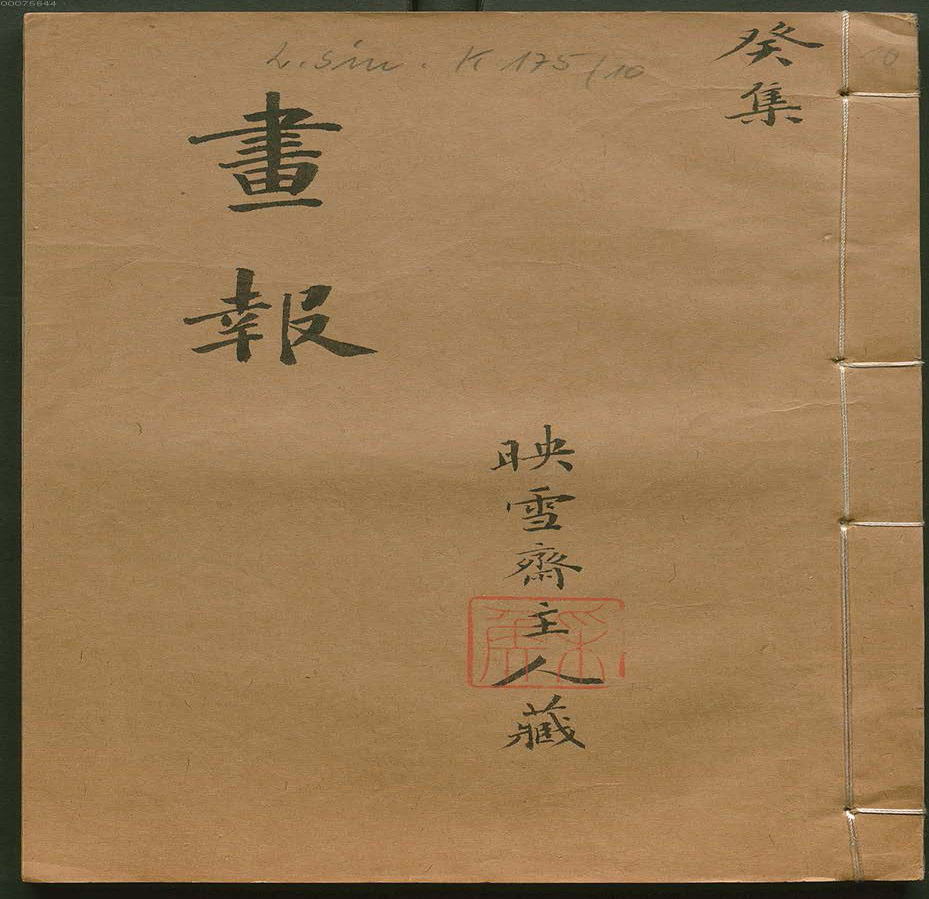 00075644
L. sin. K 175/10
10
癸集
畫報
映雪齋主人藏